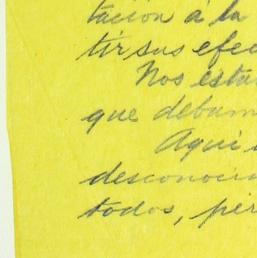 tación á la
tir sus efec
Nos esta
que debem
Aqui
desconocid
todos, per